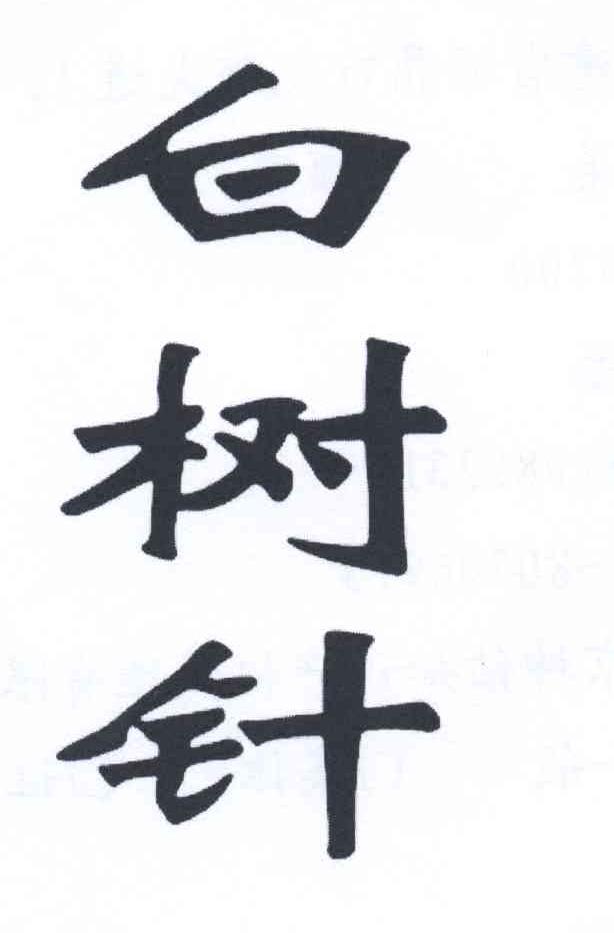 白
树
针